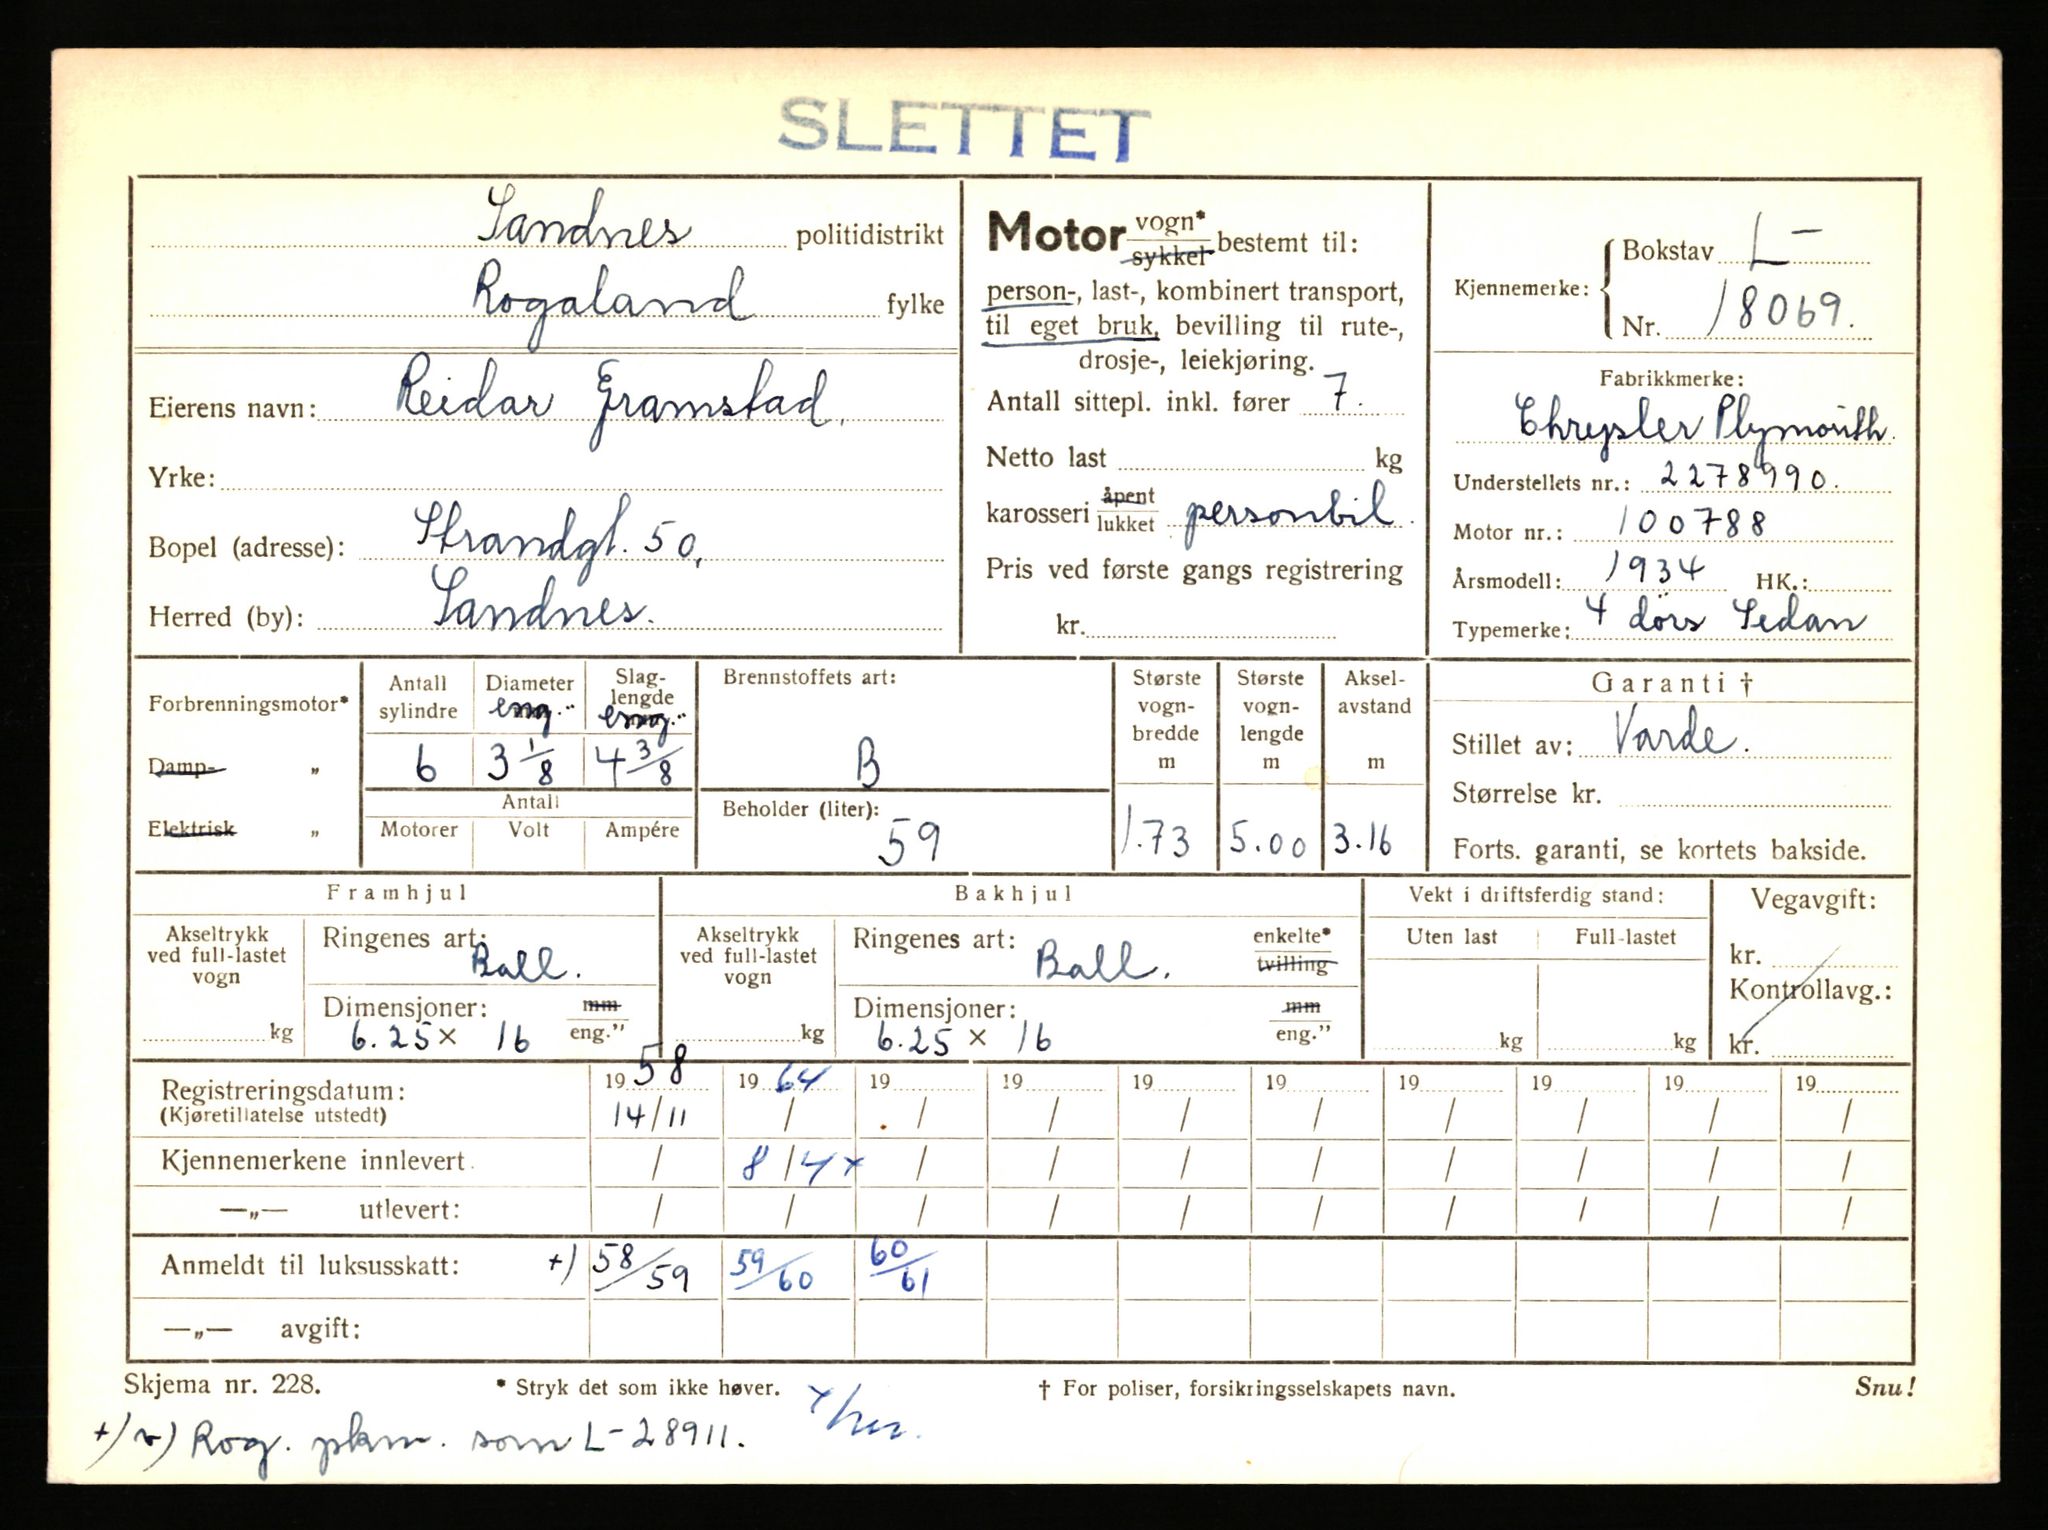 SLETTET
Sandnes politidistrikt
Rogaland fylke
Eierens navn: Reidar Gramstad.
Yrke:
Bopel (adresse): Strandgt. 50,
Herred (by): Sandnes.
Motor vogn* sykkel bestemt til:
person-, last-, kombinert transport,
til eget bruk, bevilling til rute-,
drosje-, leiekjøring.
Antall sittepl. inkl. fører 7.
Netto last kg
karosseri åpent lukket personbil.
Pris ved første gangs registrering
kr.
Kjennemerke: Bokstav L-
Nr. 18069.
Fabrikkmerke:
Chrysler Plymouth.
Understellets nr.: 2278990.
Motor nr.: 100788
Årsmodell: 1934 HK.:
Typemerke: 4 dørs Sedan
Forbrenningsmotor*
Damp- „
Elektrisk „
Antall sylindre
6
Diameter eng."
3 1/8
Slag-
lengde
eng."
4 3/8
Antall
Motorer Volt Ampére
Brennstoffets art:
B
Beholder (liter):
59
Største
vogn-
bredde
m
1.73
Største
vogn-
lengde
m
5.00
Aksel-
avstand
m
3.16
Garanti †
Stillet av: Varde.
Størrelse kr.
Forts. garanti, se kortets bakside.
Framhjul
Akseltrykk
ved full-lastet
vogn
kg
Ringenes art:
Ball.
Dimensjoner: mm
6.25 x 16 eng."
Bakhjul
Akseltrykk
ved full-lastet
vogn
kg
Ringenes art: enkelte*
Ball. tvilling
Dimensjoner: mm
6.25 x 16 eng."
Vekt i driftsferdig stand:
Uten last Full-lastet
kg kg
Vegavgift:
kr.
Kontrollavg.:
kr.
Registreringsdatum: 19 58 19 64 19 19 19 19 19 19 19 19
(Kjøretillatelse utstedt) 14/11 / / / / / / / / /
Kjennemerkene innlevert. / 8/4 x / / / / / / / /
—„— utlevert: / / / / / / / / / /
Anmeldt til luksusskatt: +) 58/59 59/60 60/61
—„— avgift:
Skjema nr. 228. * Stryk det som ikke høver. † For poliser, forsikringsselskapets navn. Snu!
+) v) Rog. pkm. som L-28911.